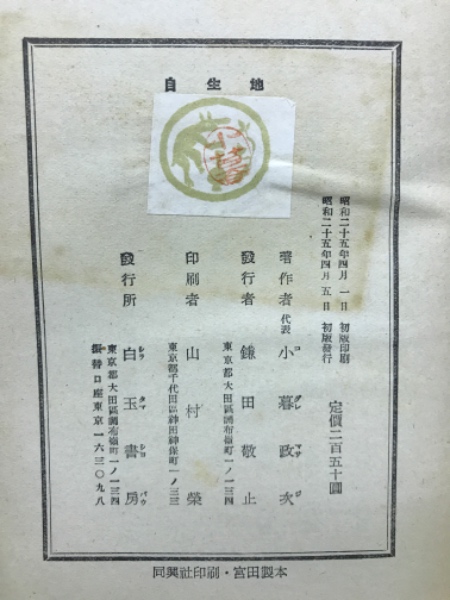 自生地
小暮
昭和二十五年四月一日 初版印刷
昭和二十五年四月五日 初版發行
定價二百五十圓
著作者 代表 小暮政次
コ グレ マサ ジ
發行者 鎌田敬止
東京都大田區調布嶺町一ノ一三四
印刷者 山村榮
東京都千代田區神田神保町一ノ三三
發行所 白玉書房
シラ タマ シヨ バウ
東京都大田區調布嶺町一ノ一三四
振替口座東京一六三〇九八
同興社印刷・宮田製本